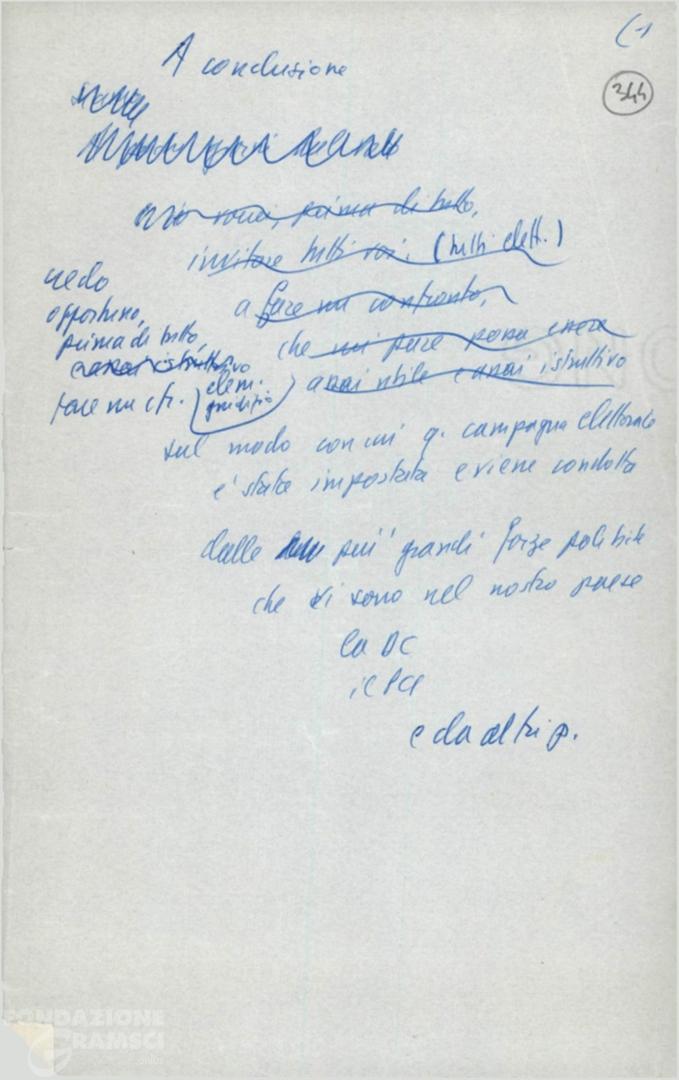 (1
344
A conclusione
vorrei, prima di tutto,
invitare tutti voi. (tutti elett.)
a fare un confronto,
che mi pare possa essere
assai utile e assai istruttivo
credo
opportuno,
prima di tutto,
e assai istruttivo
fare un cfr.
elem.
giudizio
sul modo con cui q. campagna elettorale
e' stata impostata e viene condotta
dalle piu' grandi forze politiche
che vi sono nel nostro paese
la DC
il PCI
e da altri p.
FONDAZIONE
GRAMSCI